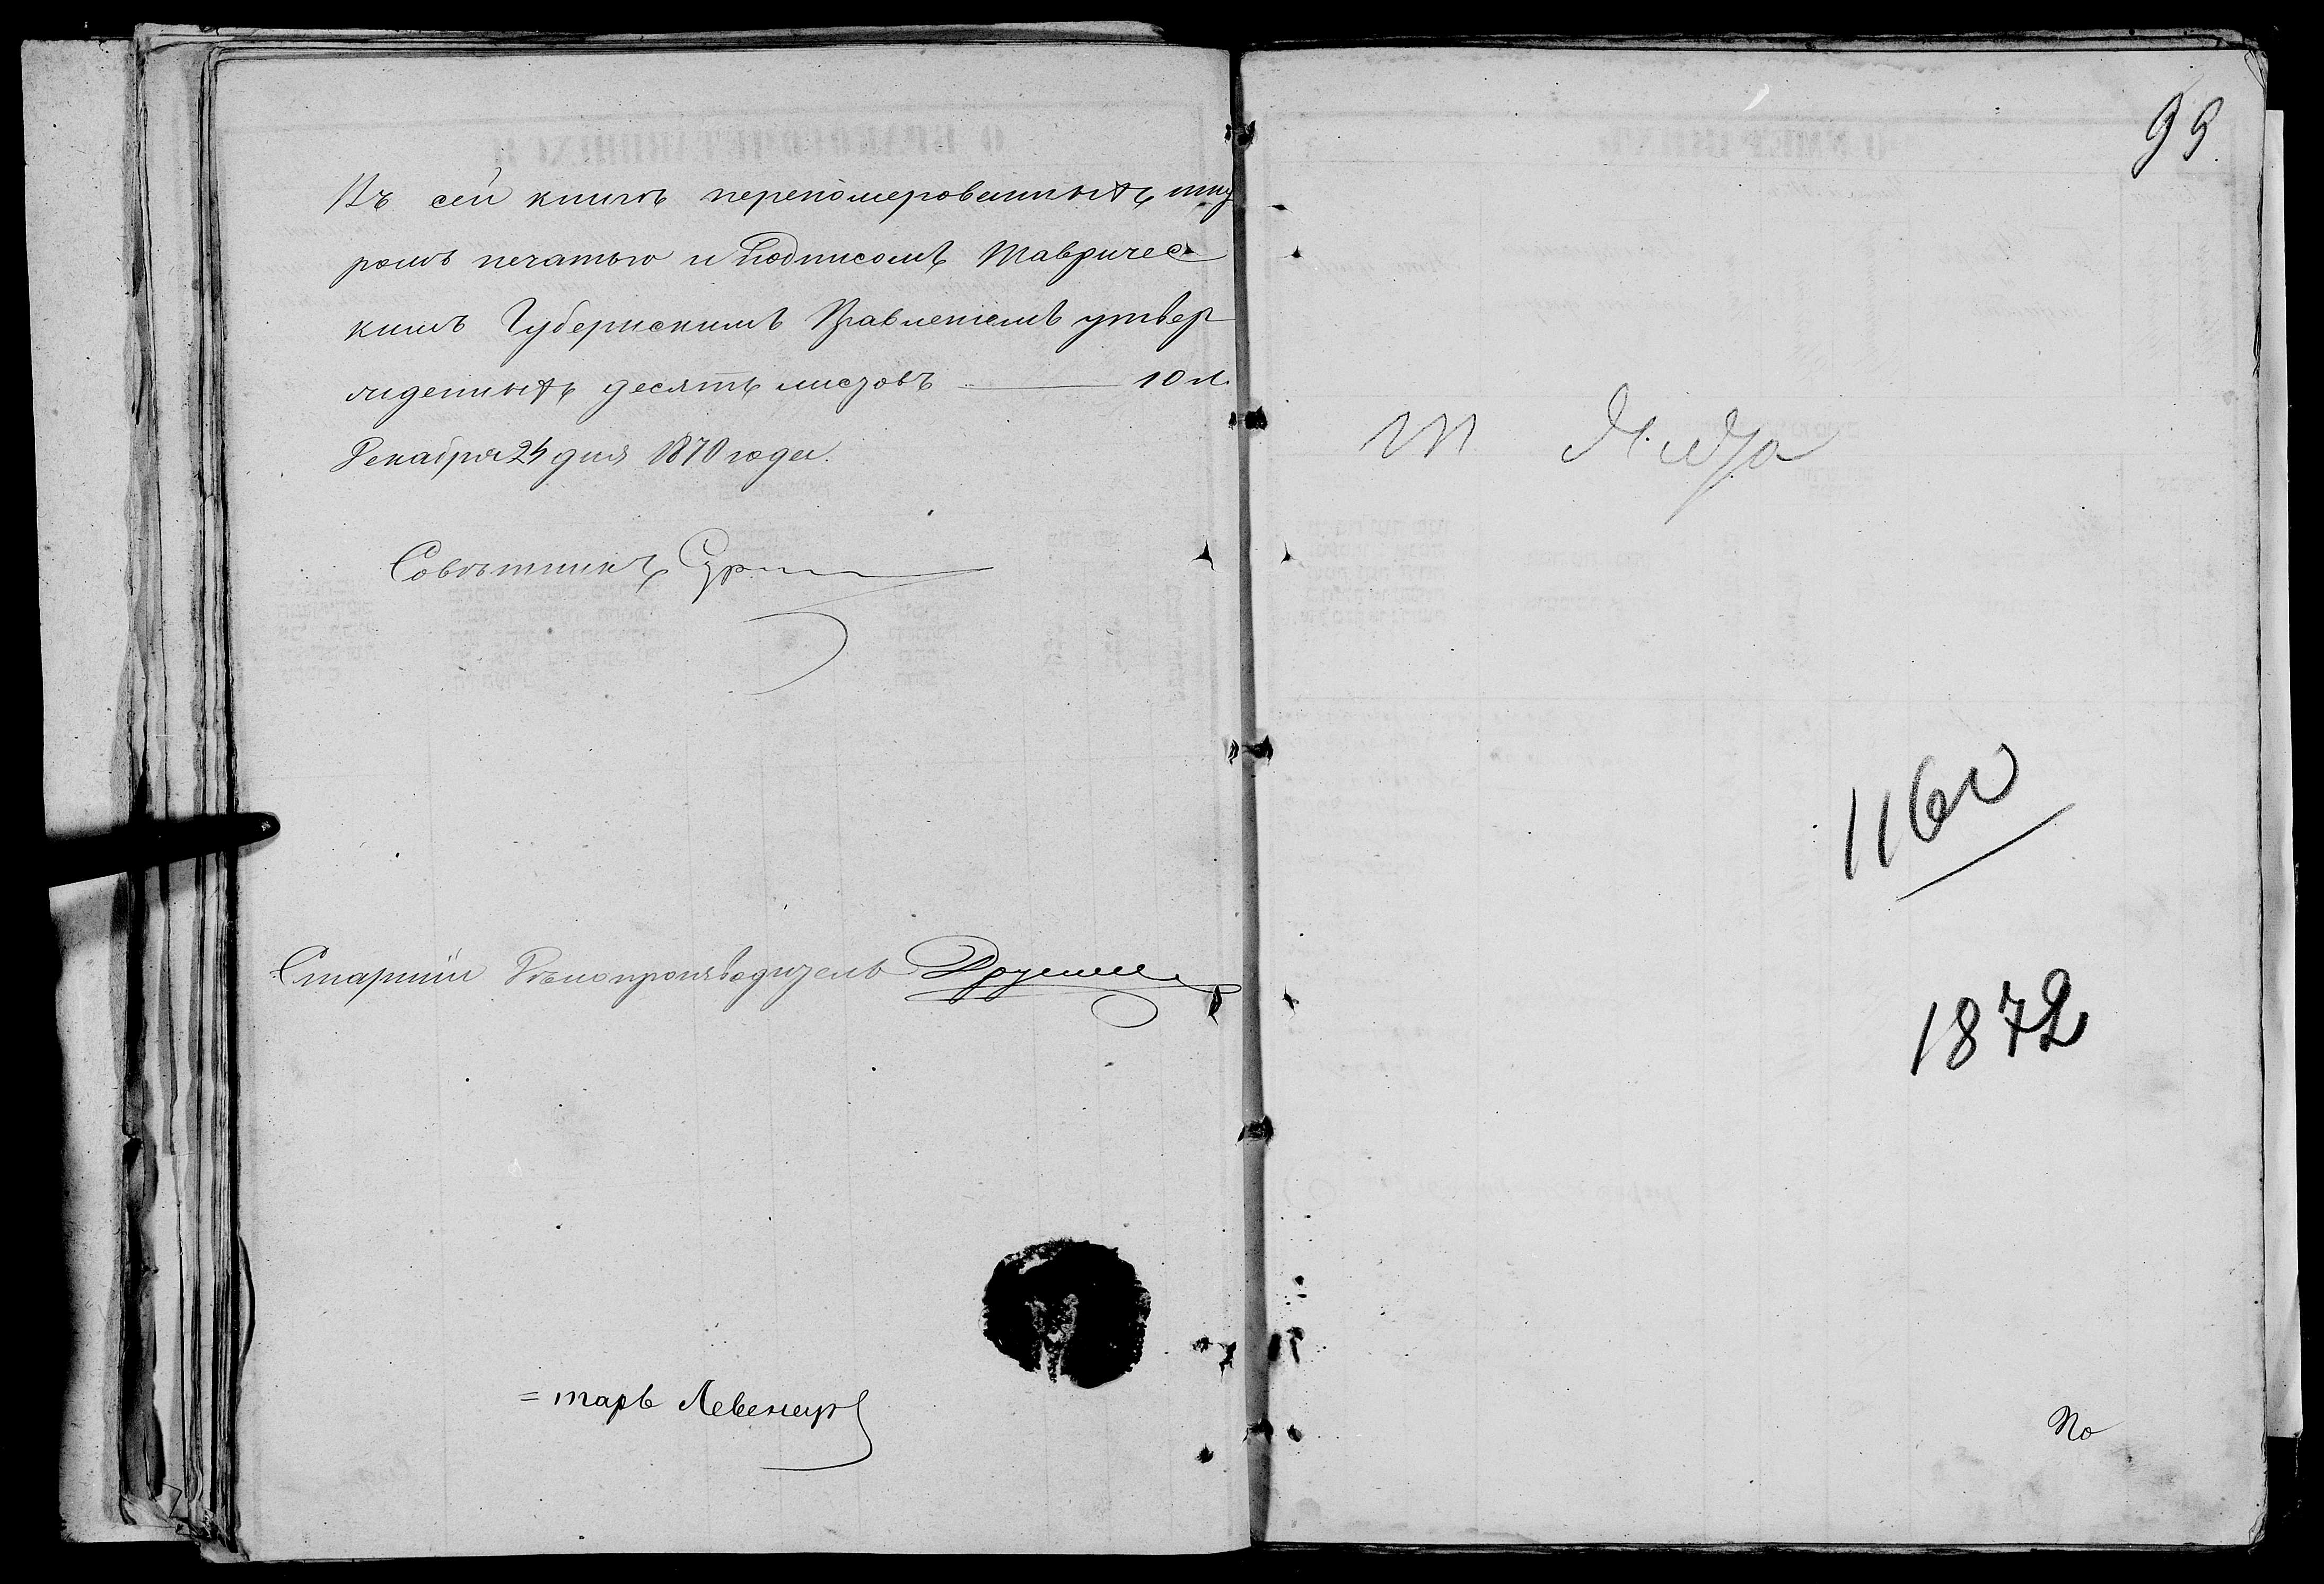 Въ сей книгѣ перепомерованныхъ шну
ромъ печатью и подписомъ Тавричес
кимъ Губернскимъ Правленіемъ утвер
жденныхъ десять листовъ 10 л.
Декабря 24 дня 1870 года.
Совѣтникъ
Старшій Дѣлопроизводитель
= тарь
99
m
1160
1872
По